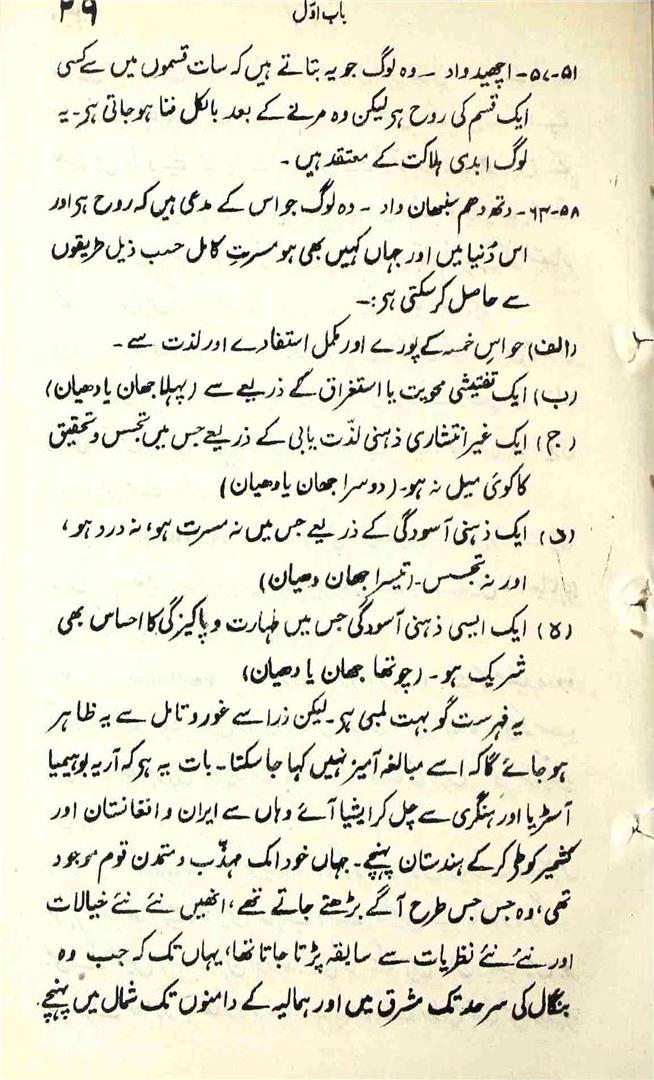 باب اوّل
۲۹
۵۱-۵۷- اچھیدواد ــ وہ لوگ جو یہ بتاتے ہیں کہ سات قسموں میں سے کسی
ایک قسم کی روح ہی لیکن وہ مرنے کے بعد بالکل فنا ہوجاتی ہی۔ یہ
لوگ ابدی ہلاکت کے معتقد ہیں۔
۵۸-۶۳- دتھ دھم نبھان واد ــ وہ لوگ جو اس کے مدعی ہیں کہ روح ہی اور
اس دُنیا میں اور جہاں کہیں بھی ہو مسرتِ کامل حسب ذیل طریقوں
سے حاصل کرسکتی ہی:۔
(الف) حواسِ خمسہ کے پورے اور مکمل استفادے اور لذت سے۔
(ب) ایک تفتیشی محویت یا استغراق کے ذریعے سے (پہلا جھان یا دھیان)
(ج) ایک غیر انتشاری ذہنی لذّت یابی کے ذریعے جس میں تجسس و تحقیق
کا کوئی میل نہ ہو۔ (دوسرا جھان یا دھیان)
(د) ایک ذہنی آسودگی کے ذریعے جس میں نہ مسرت ہو، نہ درد ہو،
اور نہ تجسس۔ (تیسرا جھان دھیان)
(ہ) ایک ایسی ذہنی آسودگی جس میں طہارت و پاکیزگی کا احساس بھی
شریک ہو۔ (چوتھا جھان یا دھیان)
یہ فہرست گو بہت لمبی ہی۔ لیکن ذرا سے غور و تامل سے یہ ظاہر
ہوجائے گا کہ اسے مبالغہ آمیز نہیں کہا جاسکتا۔ بات یہ ہی کہ آریہ بوہیمیا
آسٹریا اور ہنگری سے چل کر ایشیا آئے وہاں سے ایران و افغانستان اور
کشمیر کو طی کرکے ہندستان پہنچے۔ جہاں خود ایک مہذّب و متمدن قوم موجود
تھی، وہ جس جس طرح آگے بڑھتے جاتے تھے، انھیں نئے نئے خیالات
اور نئے نئے نظریات سے سابقہ پڑتا جاتا تھا، یہاں تک کہ جب وہ
بنگال کی سرحد تک مشرق میں اور ہمالیہ کے دامنوں تک شمال میں پہنچے۔